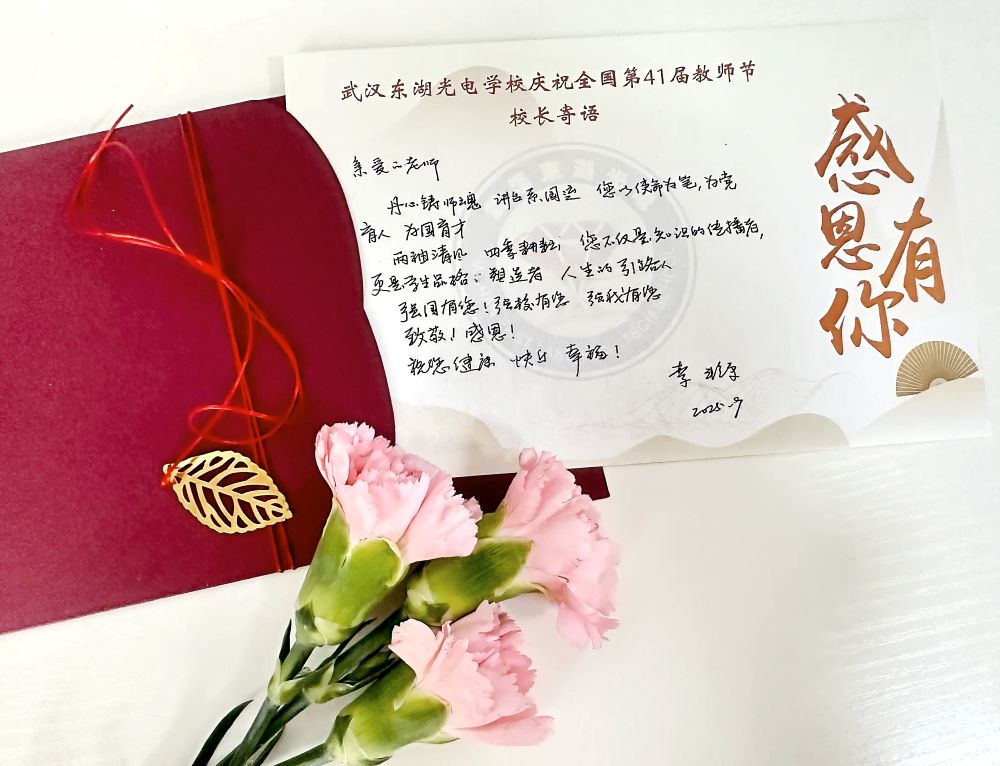 武汉东湖光电学校庆祝全国第41届教师节
校长寄语
亲爱的老师
丹心铸师魂 讲台系国运 您以使命为笔,为党
育人 为国育才
两袖清风 四季耕耘; 您不仅是知识的传播者,
更是学生品格的塑造者 人生的引路人
强国有您!强校有您 强我有您
致敬!感恩!
祝您健康 快乐 幸福!
李
2025.9
感恩有你